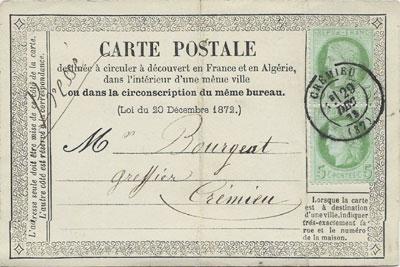 CARTE POSTALE
destinée à circuler à découvert en France et en Algérie,
dans l'intérieur d'une même ville
ou dans la circonscription du même bureau.
(Loi du 20 Décembre 1872.)
L'adresse seule doit être mise de ce côté de la carte.
L'autre côté est réservé à la correspondance.
Mr Bourgeat
greffier
Crémieu
CRÉMIEU
29
(37)
5 CENTES 5
Lorsque la carte
est à destination
d'une ville, indiquer
très-exactement la
rue et le numéro
de la maison.